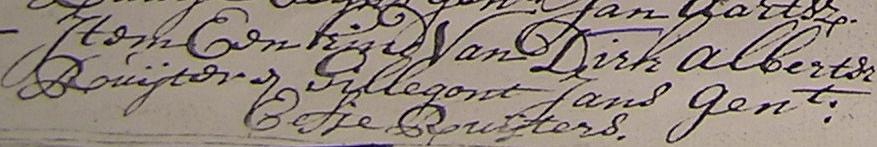 gent: Jan Aartsz.
Item Een kind Van Dirk Alberts
Ruijter & Hillegont Jans gent:
Eefje Ruijters.